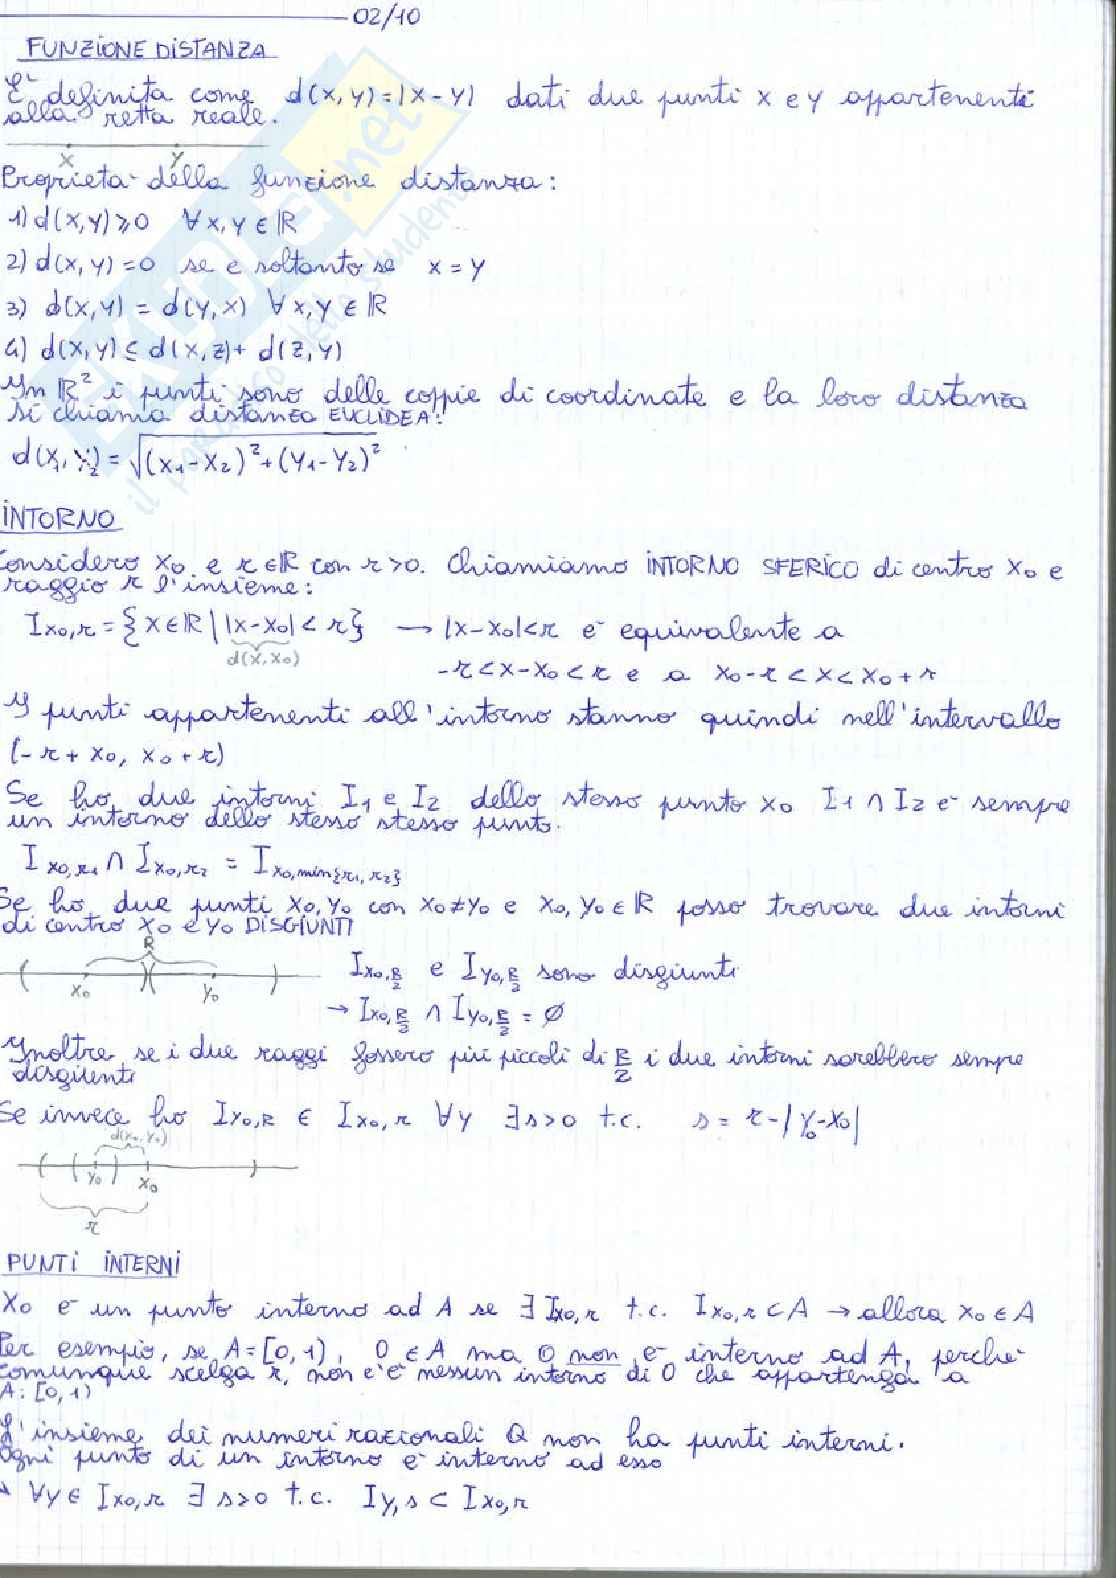 02/10
FUNZIONE DISTANZA
E' definita come d(x,y)=|x-y| dati due punti x e y appartenenti
alla retta reale.
x y
Proprietà della funzione distanza:
1) d(x,y)⩾0 ∀x,y∈ℝ
2) d(x,y)=0 se e soltanto se x=y
3) d(x,y) = d(y,x) ∀x,y∈ℝ
4) d(x,y) ≤ d(x,z)+ d(z,y)
In ℝ² i punti sono delle coppie di coordinate e la loro distanza
si chiama distanza EUCLIDEA:
= √(x₁-x₂)²+(y₁-y₂)²
INTORNO
Considero x₀ e r∈ℝ con r>0. Chiamiamo INTORNO SFERICO di centro x₀ e
raggio r l'insieme:
Ix₀,r = {x∈ℝ | |x-x₀| < r} → |x-x₀|<r è equivalente a
d(x,x₀)
-r<x-x₀<r e a x₀-r<x<x₀+r
I punti appartenenti all'intorno stanno quindi nell'intervallo
(-r+x₀, x₀+r)
Se ho due intorni I₁ e I₂ dello stesso punto x₀ I₁∩I₂ è sempre
un intorno dello stesso stesso punto.
Ix₀,r₁ ∩ Ix₀,r₂ = Ix₀,min{r₁,r₂}
Se ho due punti x₀,y₀ con x₀≠y₀ e x₀,y₀∈ℝ posso trovare due intorni
di centro x₀ e y₀ DISGIUNTI
R
x₀ y₀
Ix₀,R/2 e Iy₀,R/2 sono disgiunti
→ Ix₀,R/2 ∩ Iy₀,R/2 = ∅
Inoltre se i due raggi fossero più piccoli di R/2 i due intorni sarebbero sempre
disgiunti
Se invece ho Iy₀,R ∈ Ix₀,r ∀y ∃s>0 t.c. s = r-|y₀-x₀|
d(x₀,y₀)
y₀ x₀
r
PUNTI INTERNI
x₀ è un punto interno ad A se ∃Ix₀,r t.c. Ix₀,r⊂A → allora x₀∈A
Per esempio, se A=[0,1), 0∈A ma 0 non è interno ad A, perché
comunque scelga r, non c'è nessun intorno di 0 che appartenga a
A: [0,1)
L'insieme dei numeri razionali Q non ha punti interni.
Ogni punto di un intorno è interno ad esso
→ ∀y∈Ix₀,r ∃s>0 t.c. Iy,s ⊂ Ix₀,r